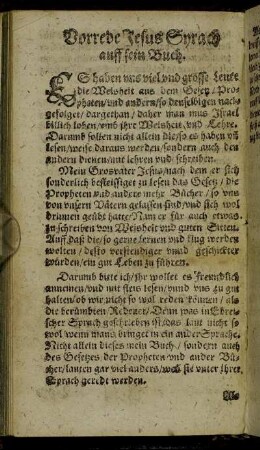 Vorrede Jesus Syrach
auff sein Buch.
ES haben uns viel vnd grosse Leute
die Weisheit aus dem Gesetz / Pro-
pheten / vnd andern / so denselbigen nach
gefolget / dargethan / daher man mus Israel
billich loben / vmb ihre Weisheit vnd Lehre.
Darumb sollen nicht allein die / so es haben vñ
lesen / weise daraus werden / sondern auch den
andern dienen / mit lehren vnd schreiben.
Mein Grosvater Jesus / nach dem er sich
sonderlich befleissiget zu lesen das Gesetz / die
Propheten vnd andere mehr Bücher / so vns
von vnsern Vätern gelassen sind / vnd sich wol
drinnen geübt hatte / Nam er für auch etwas
zu schreiben von Weisheit vnd guten Sitten.
Auff daß die / so gerne lernen vnd klug werden
wolten / desto verstendiger vnnd geschickter
würden / ein gut Leben zu führen.
Darumb bitte ich / ihr wollet es freundlich
annemen / vnd mit fleis lesen / vnnd vns zu gut
halten / ob wir nicht so wol reden können / als
die berümbten Redener / Denn was in Ebrei-
scher Sprach geschrieben ist / das laut nicht so
wol wenn mans bringet in ein ander Sprache.
Nicht allein dieses mein Buch / sondern auch
des Gesetzes der Propheten vnd ander Bü-
cher / lauten gar viel anders / weñ sie vnter ihrer
Sprach geredt werden.